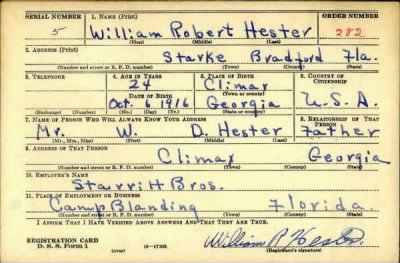 SERIAL NUMBER 1. NAME (Print) ORDER NUMBER
5 William Robert Hester 282
(First) (Middle) (Last)
2. ADDRESS (Print)
Starke Bradford Fla.
(Number and street or R. F. D. number) (Town) (County) (State)
3. TELEPHONE 4. AGE IN YEARS 5. PLACE OF BIRTH 6. COUNTRY OF CITIZENSHIP
24 Climax
DATE OF BIRTH (Town or county)
Oct. 6 1916 Georgia U.S.A.
(Exchange) (Number) (Mo.) (Day) (Yr.) (State or country)
7. NAME OF PERSON WHO WILL ALWAYS KNOW YOUR ADDRESS 8. RELATIONSHIP OF THAT PERSON
Mr. W. D. Hester Father
(Mr., Mrs., Miss) (First) (Middle) (Last)
9. ADDRESS OF THAT PERSON
Climax Georgia
(Number and street or R. F. D. number) (Town) (County) (State)
10. EMPLOYER'S NAME
Starritt Bros.
11. PLACE OF EMPLOYMENT OR BUSINESS
Camp Blanding Florida
(Number and street or R. F. D. number) (Town) (County) (State)
I AFFIRM THAT I HAVE VERIFIED ABOVE ANSWERS AND THAT THEY ARE TRUE.
REGISTRATION CARD
D. S. S. Form 1 (over) 16—17105 William R. Hester
(Registrant's signature)